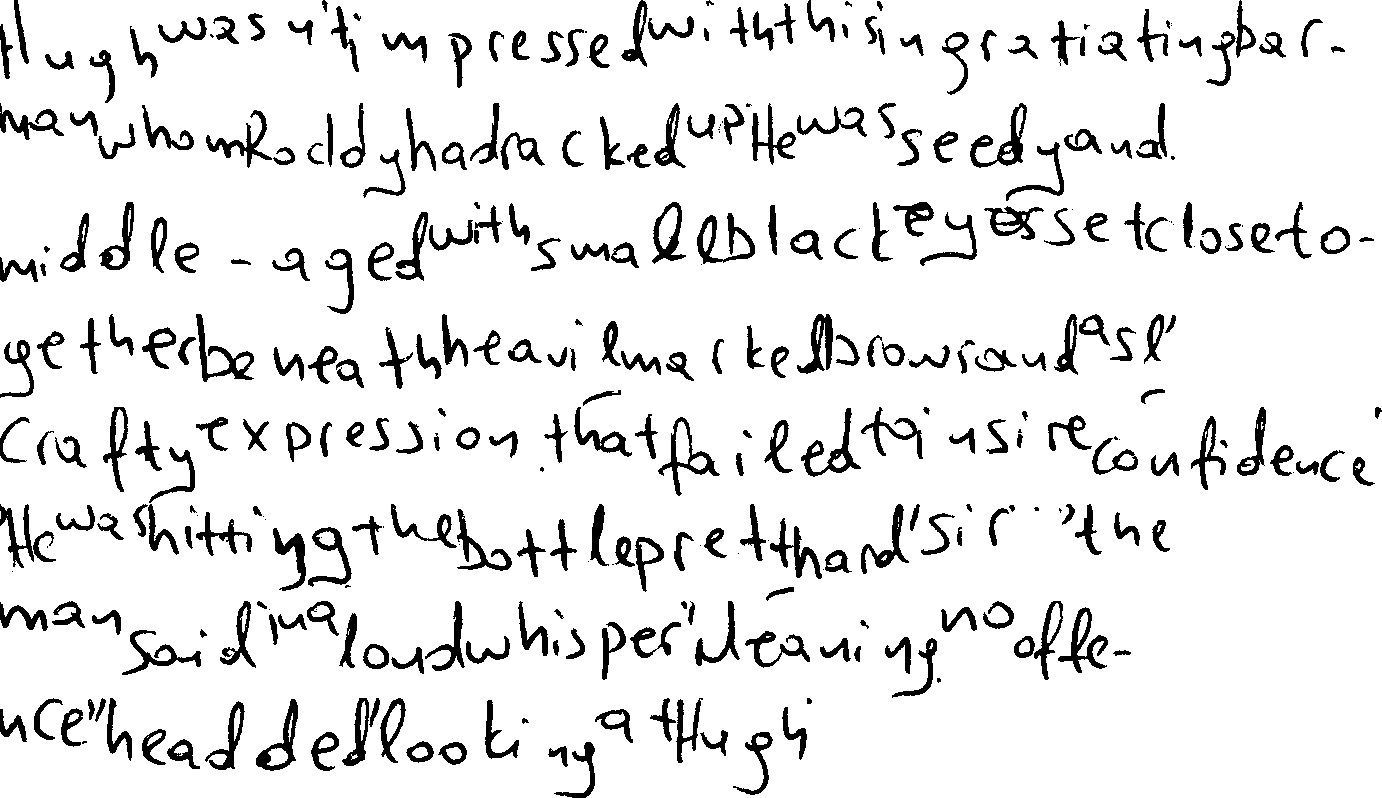 Hugh wasn't impressed with this ingratiating bar-
man whom Roddy had racked up He was seedy and
middle-aged with small black eyes set close to-
gether beneath heavil marked brows and a sl'
crafty expression that failed to insire confidence'
'He was hitting the bottle prett hard' sir "the
man said in a loud whisper" Meaning no offe-
nce" he added' looking at Hugh